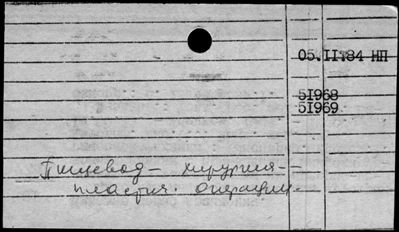 05.II.84 НП
5I968
5I969
Пищевод – хирургия –
пластич. операции.